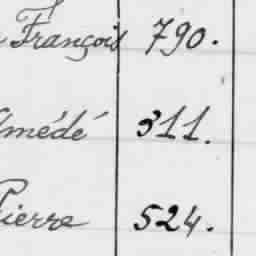 François 790.
Amédé 311.
Pierre 524.